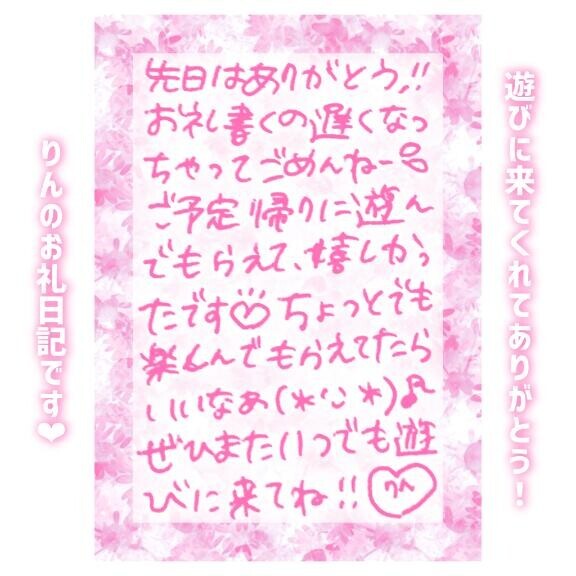 遊びに来てくれてありがとう！
先日はありがとう!!
お礼書くの遅くなっ
ちゃってごめんねー
ご予定帰りに遊ん
でもらえて、嬉しかっ
たです♡ちょっとでも
楽しんでもらえてたら
いいなぁ(*'ᴗ'*)♪
ぜひまたいつでも遊
びに来てね!!りん
りんのお礼日記です❤